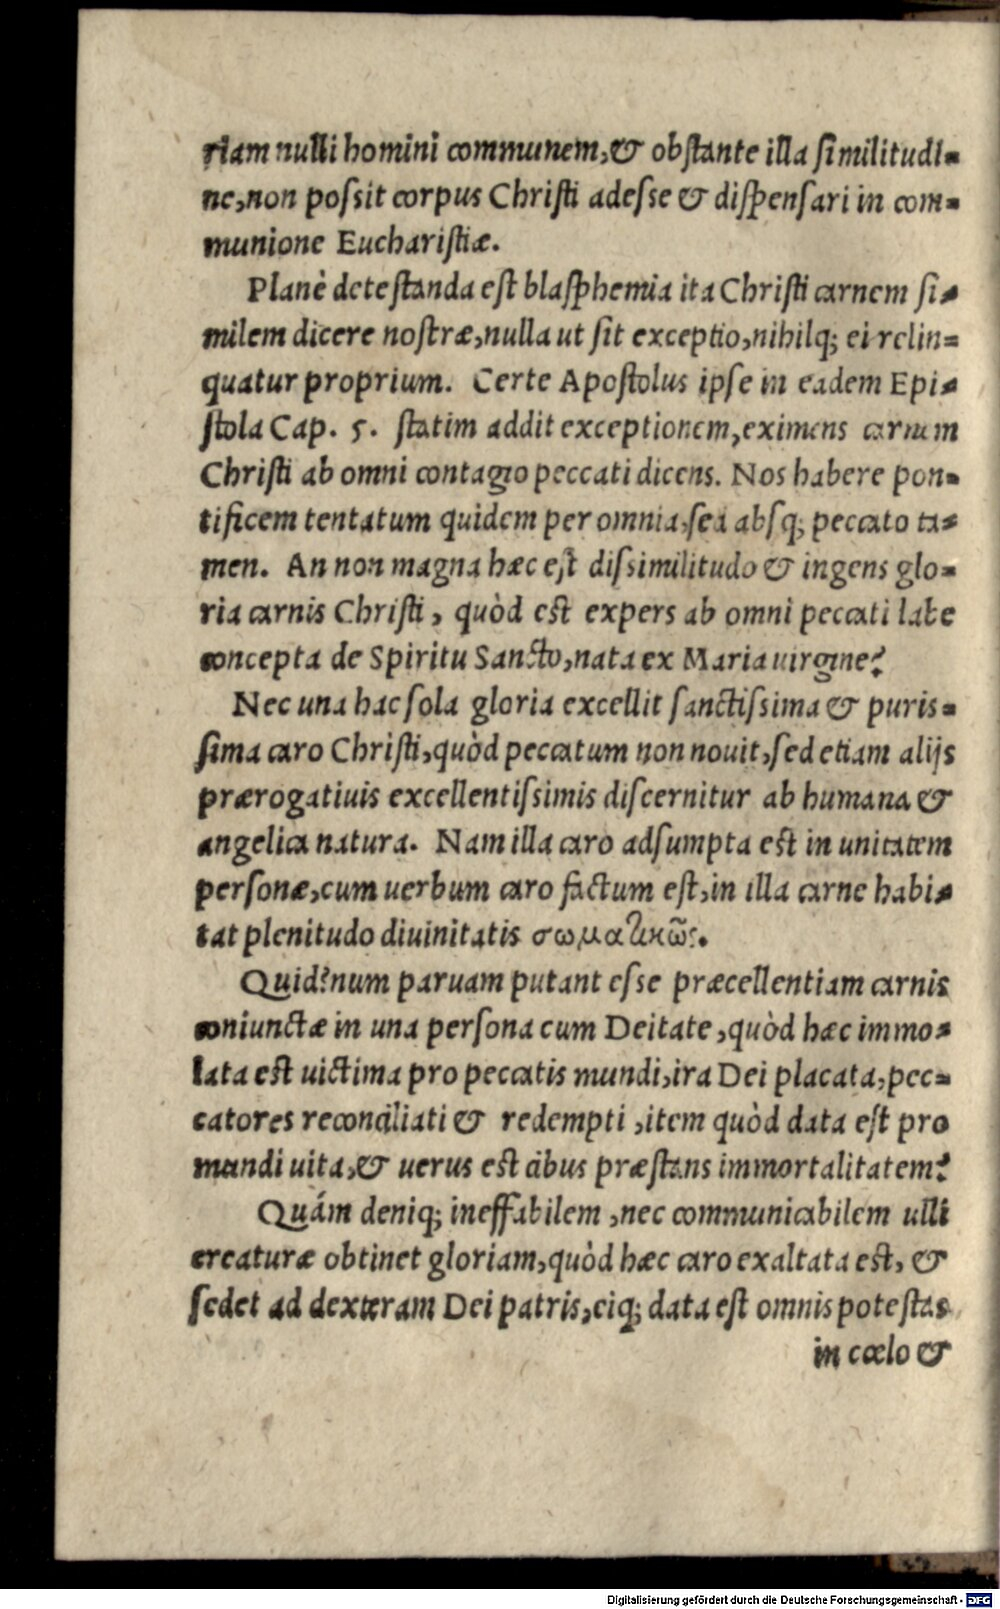 riam nulli homini communem,& obstante illa similitudi-
ne,non possit corpus Christi adesse & dispensari in com-
munione Eucharistiæ.
Planè detestanda est blasphemia ita Christi carnem si-
milem dicere nostræ,nulla ut sit exceptio,nihilq; ei relin-
quatur proprium. Certe Apostolus ipse in eadem Epi-
stola Cap. 5. statim addit exceptionem,eximens carnem
Christi ab omni contagio peccati dicens. Nos habere pon-
tificem tentatum quidem per omnia,sed absq; peccato ta-
men. An non magna hæc est dissimilitudo & ingens glo-
ria carnis Christi, quòd est expers ab omni peccati labe
concepta de Spiritu Sancto,nata ex Maria uirgine?
Nec una hac sola gloria excellit sanctissima & puris-
sima caro Christi,quòd peccatum non nouit,sed etiam alijs
prærogatiuis excellentissimis discernitur ab humana &
angelica natura. Nam illa caro adsumpta est in unitatem
personæ,cum uerbum caro factum est,in illa carne habi-
tat plenitudo diuinitatis σωματικῶς.
Quid?num paruam putant esse præcellentiam carnis
coniunctæ in una persona cum Deitate,quòd hæc immo-
lata est uictima pro peccatis mundi,ira Dei placata,pec-
catores reconciliati & redempti,item quòd data est pro
mundi uita,& uerus est cibus præstans immortalitatem?
Quám deniq; ineffabilem,nec communicabilem ulli
creaturæ obtinet gloriam,quòd hæc caro exaltata est, &
sedet ad dexteram Dei patris,eiq; data est omnis potestas
in cœlo &
Digitalisierung gefördert durch die Deutsche Forschungsgemeinschaft - DFG